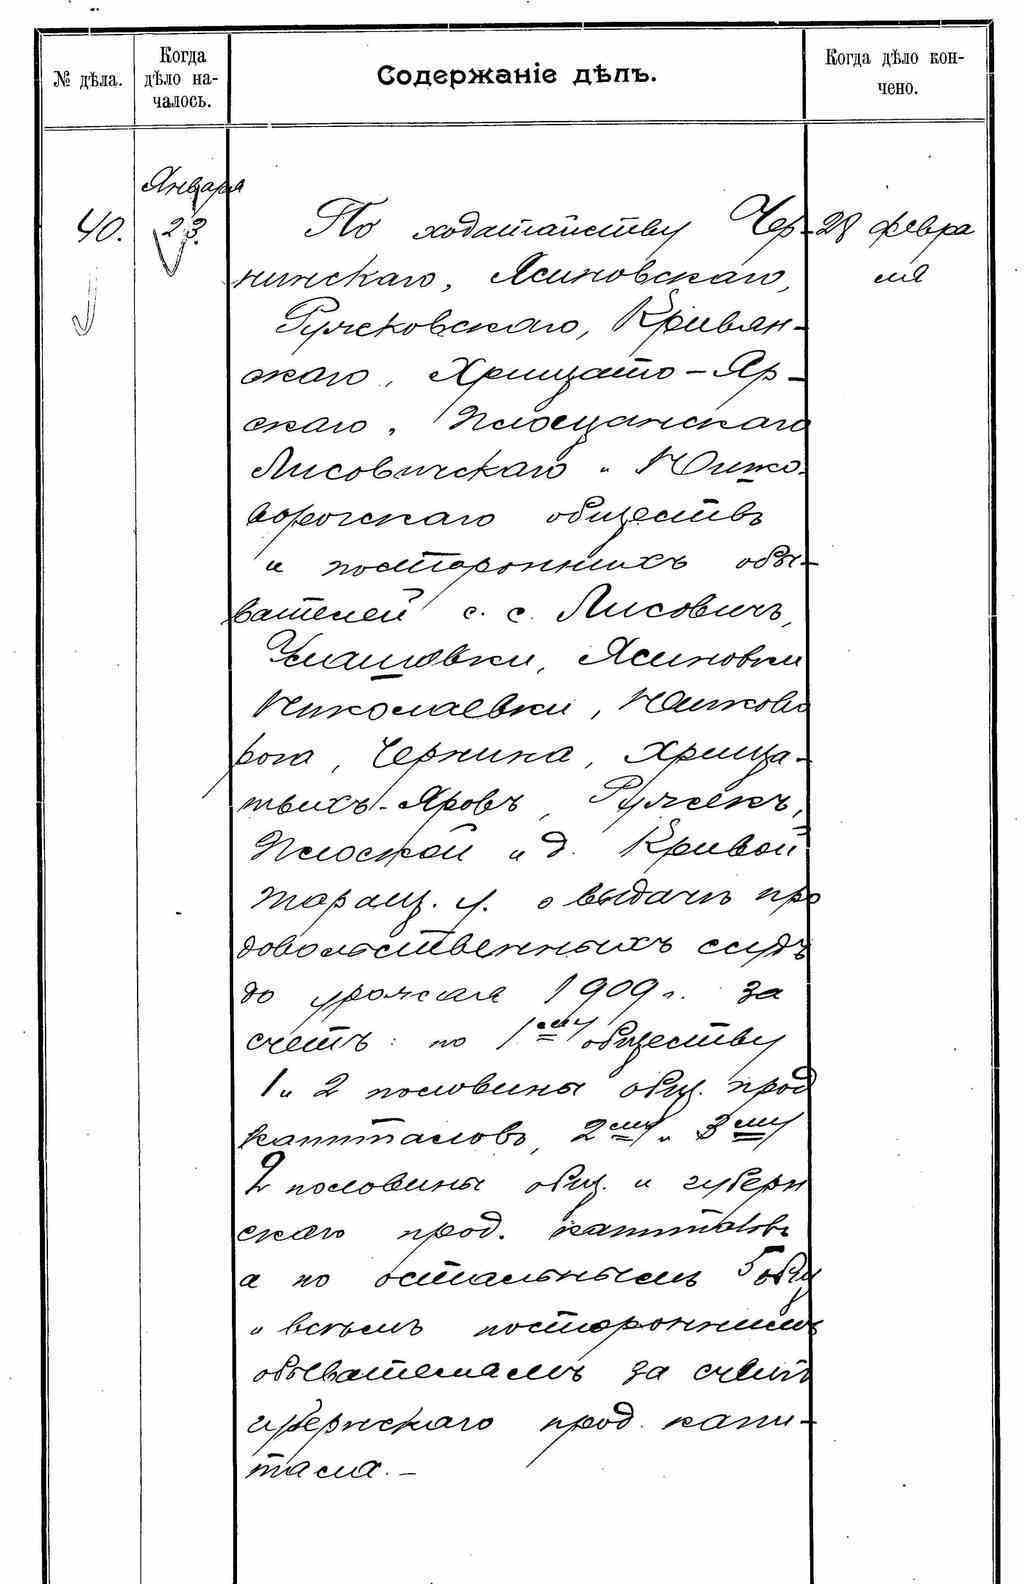 № дѣла.
Когда
дѣло на-
чалось.
Содержаніе дѣлъ.
Когда дѣло кон-
чено.
Января
40.
23.
По ходатайству Чер-
28 февра
нинскаго, Ясиновскаго,
ля
Ручековскаго, Кривян-
скаго, Хрищато-Яр-
скаго, Плосчанскаго
Лисовичскаго и
рогскаго обществъ
и постороннихъ обы-
вателей с. с. Лисовичъ,
Улашовки, Ясиновки
Николаевки,
рога, Чернина, Хрища-
тыхъ-Яровъ, Ручекъ,
Плоской и д. Кривой
Таращ. у. о выдачѣ про
довольственныхъ ссудъ
до урожая 1909 г. за
счетъ: по 1ому обществу
1 и 2 половины общ. прод
капиталовъ, 2му и 3му
2 половины общ. и губерн
скаго прод. капиталовъ
а по остальнымъ 5 общ
и всѣмъ постороннимъ
обывателямъ за счетъ
губернскаго прод. капи-
тала. —